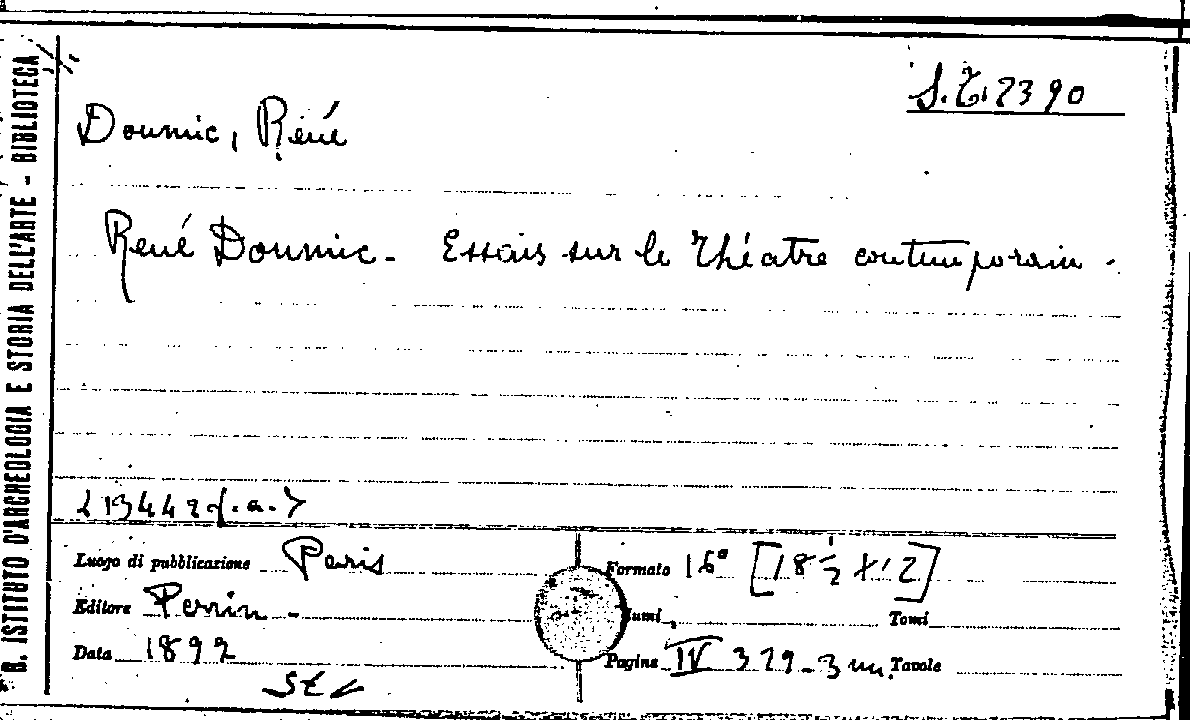 R. ISTITUTO D'ARCHEOLOGIA E STORIA DELL'ARTE - BIBLIOTECA
S.T. 2390
Doumic, René
René Doumic - Essais sur le Théatre contemporain.
Luogo di pubblicazione Paris
Formato 16° [18 ½ x 12]
Editore Perrin -
Numi Tomi
Data 1892
Pagine IV 329-3 nn. Tavole